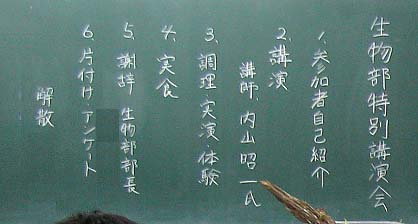 生物部特別講演会
1、参加者自己紹介
2、講演
講師、内山昭一氏
3、調理実演・体験
4、実食
5、謝辞 生物部部長
6、片付け・アンケート
解散